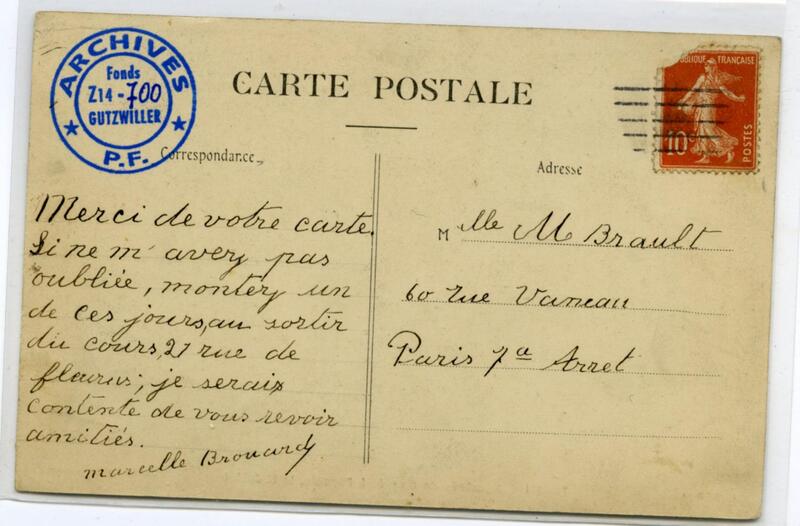 ARCHIVES
Fonds
Z14-700
GUTZWILLER
P.F.
CARTE POSTALE
RÉPUBLIQUE FRANÇAISE
10c
POSTES
Correspondance
Adresse
Merci de votre carte.
Si ne m'avez pas
oubliée, montez un
de ces jours, au sortir
du cours, 21 rue de
fleurus; je serais
contente de vous revoir
amitiés.
marcelle Brouard
Mlle M Brault
60 rue Vaneau
Paris 7a Arret